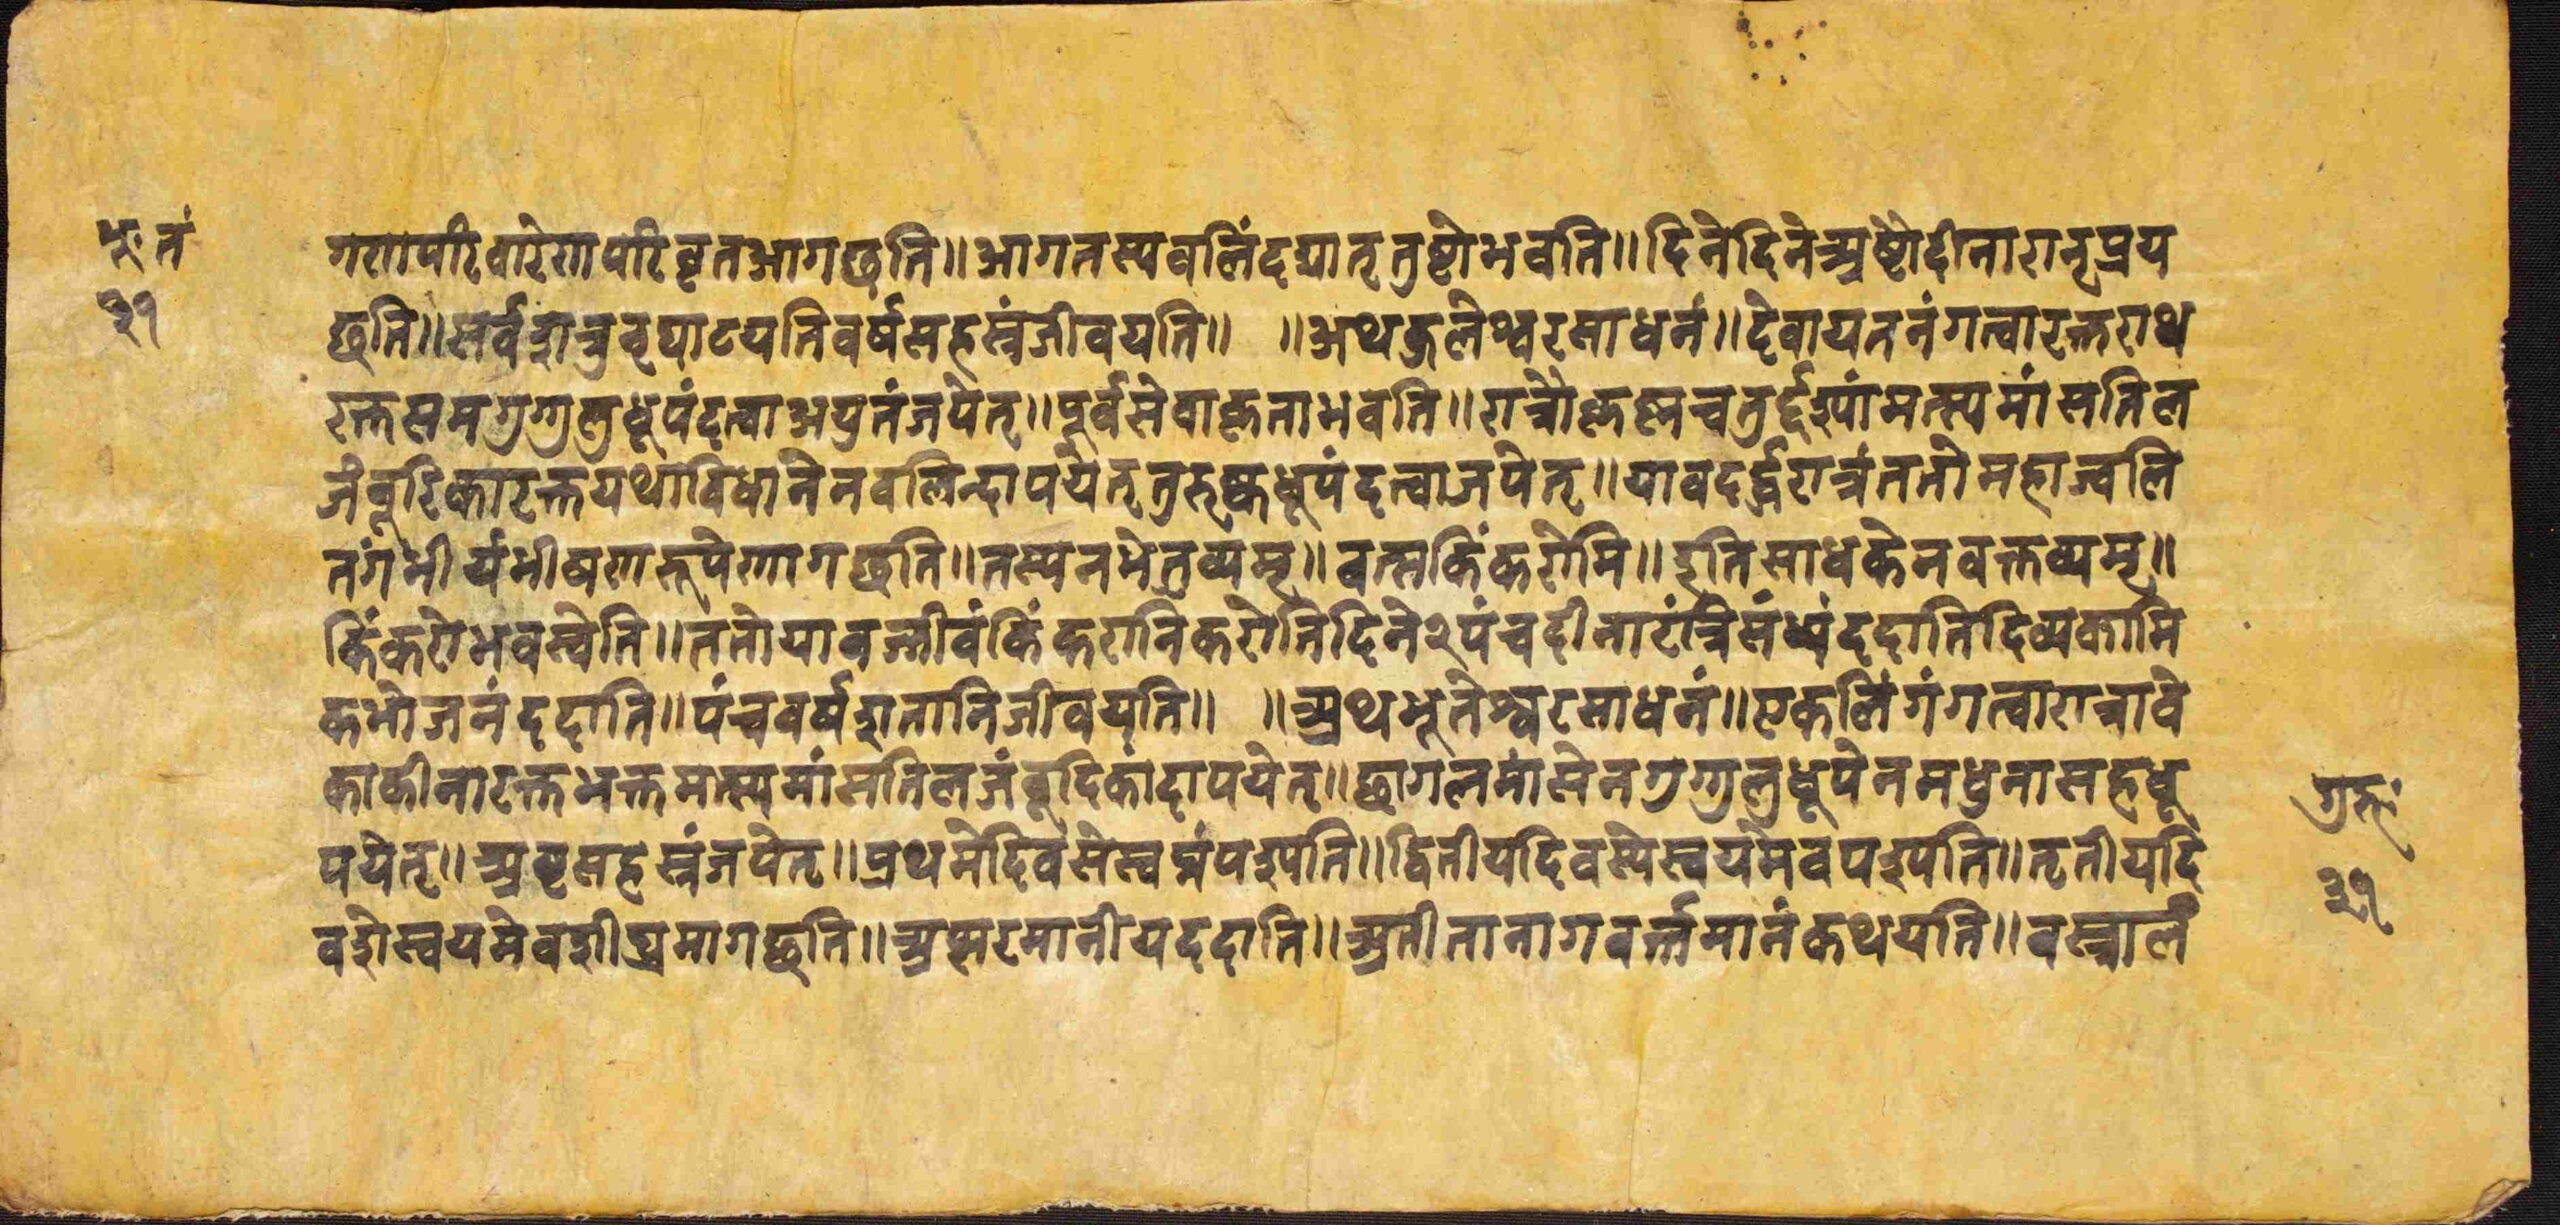 भू तं
३१
गणपरिवारेणपरिवृतआगछति॥आगतस्यबलिंदद्यात्तुष्टोभवति॥दिनेदिनेअष्टौदीनारान्प्रय
छति॥सर्वशत्रुन्पाटयतिवर्षसहस्रंजीवयति॥ ॥अथज्जलेश्वरसाधनं॥देवायतनंगत्वारक्तराध
रक्तसमगुग्गुलुधूपंदत्वाअयुतंजपेत्॥पूर्वसेवाकृताभवति॥रात्रौकृष्णचतुर्द्दश्यांमत्स्यमांसतिल
जंबूदिकारक्तयथाविधानेनबलिन्दापयेत्तुरुष्कधूपंदत्वाजपेत्॥यावदर्द्धरात्रंततोमहाज्वलि
तगंभीर्यभीषणरूपेणागछति॥तस्यनभेतव्यम्॥वत्सकिंकरोमि॥इतिसाधकेनवक्तव्यम्॥
किंकरोभवस्वेति॥ततोयावज्जीवंकिंकरानिकरोतिदिने२पंचदीनारंत्रिसंध्यंददातिदिव्यकामि
कभोजनंददाति॥पंचवर्षशतानिजीवयति॥ ॥अथभूतेश्वरसाधनं॥एकलिंगंगत्वारात्रावे
काकीनारक्तभक्तमत्स्यमांसतिलजंबूदिकांदापयेत्॥छागलमांसेनगुग्गुलुधूपेनमधुनासहधू
पयेत्॥अष्टसहस्रंजपेत्॥प्रथमेदिवसेस्वप्नंपश्यति॥द्वितीयदिवस्येस्वयमेवपश्यति॥तृतीयदि
वशेस्वयमेवशीघ्रमागछति॥अप्सरमानीयददाति॥अतीतानागवर्त्तमानंकथयति॥वस्त्रालं
गुरुः
३१